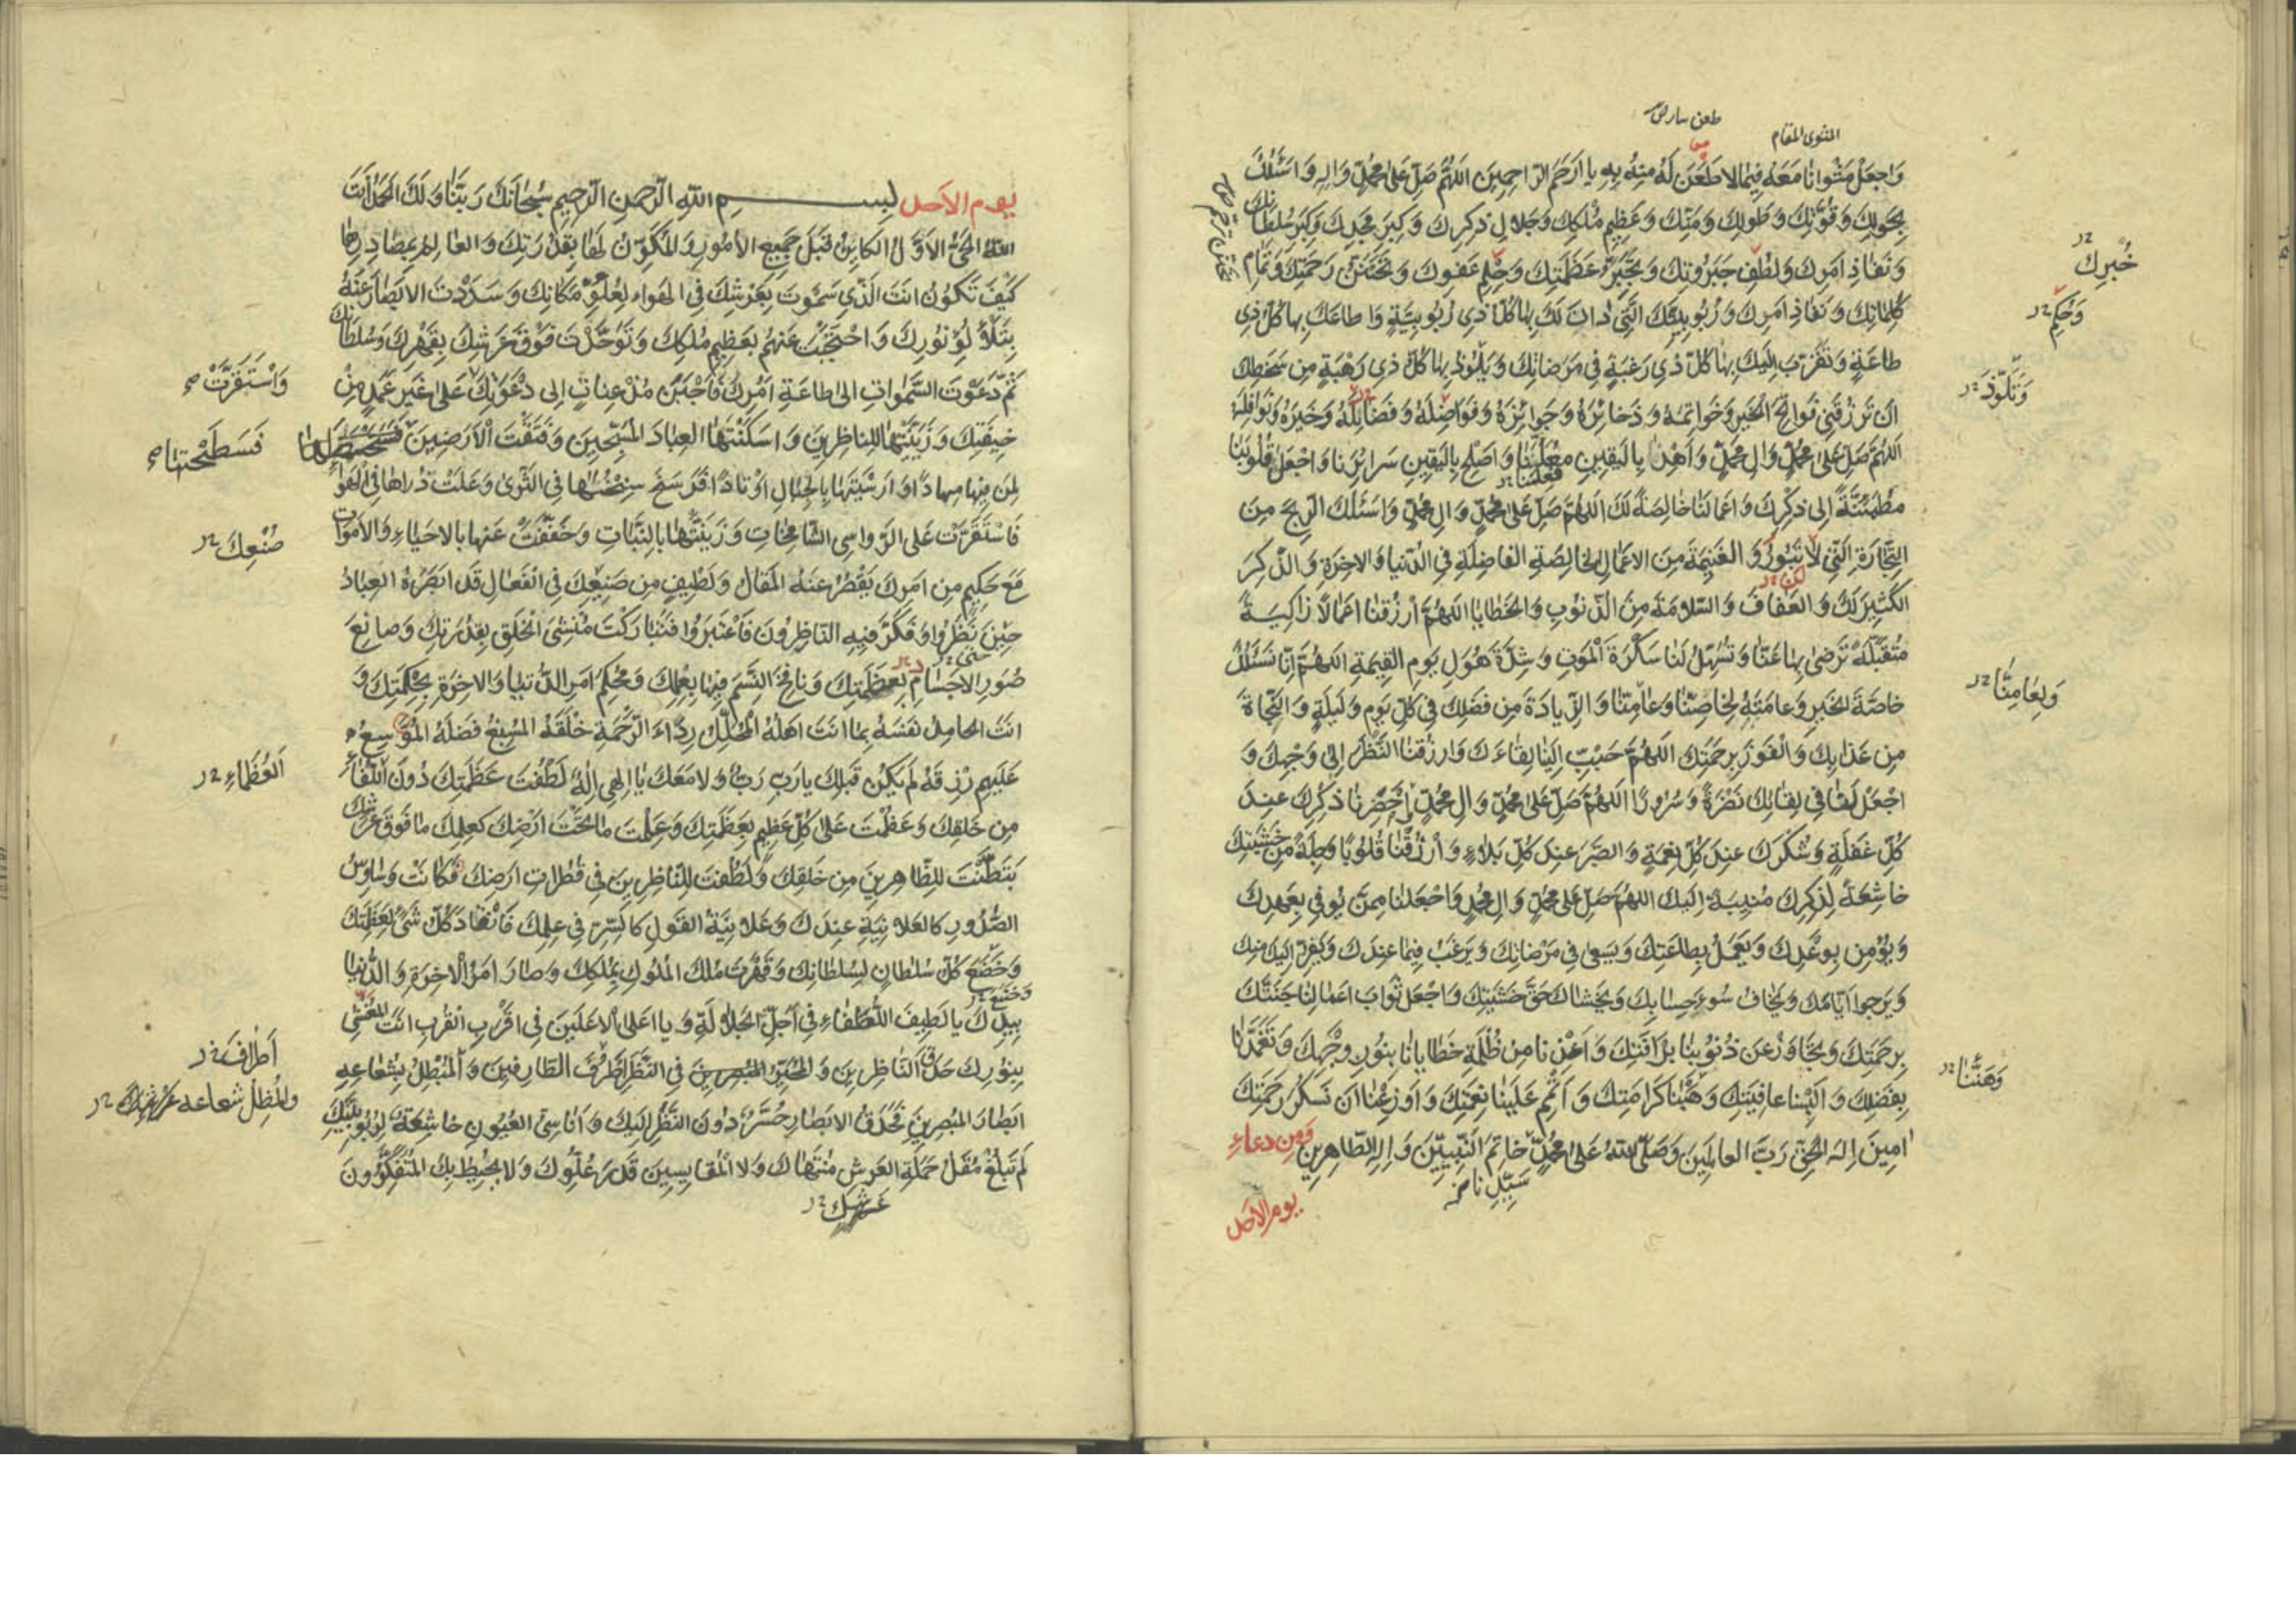 المثوى المقام
وَاجعَلْ مَثْوانا مَعَهُ فِيمَا لاظَعَنَ لَهُ مِنهُ بِهِ يا اَرحَمَ الرّاحِمِينَ اللّهُمَّ صَلِّ عَلى مُحَمَّدٍ وَالِهِ وَاَسْئَلُكَ
بِحَولِكَ وَقُوَّتِكَ وَطَولِكَ وَمَنِّكَ وَعَظِيمِ مُلكِكَ وَجَلالِ ذِكرِكَ وَكِبَرِ مَجدِكَ وَكِبَرِ سُلطانِكَ
وَنَفاذِ اَمرِكَ وَلُطفِ جَبَرُوتِكَ وَتَجَبُّرِ عَظَمَتِكَ وَحِلمِ عَفوِكَ وَتَحَنُّنِ رَحمَتِكَ وَتَمامِ
كَلِماتِكَ وَنَفاذِ اَمرِكَ وَرُبُوبِيَّتِكَ الَّتِي دانَ لَكَ بِها كُلُّ ذِي رُبُوبِيَّةٍ وَاطاعَكَ بِها كُلُّ ذِي
طاعَةٍ وَتَقَرَّبَ اِلَيكَ بِها كُلُّ ذِي رَغبَةٍ فِي مَرَضاتِكَ وَيَلُوذُ بِها كُلُّ ذِي رَهْبَةٍ مِن سَخَطِكَ
اَن تَرزُقَنِي فَواتِحَ الخَيرِ وَخَواتِمَهُ وَذَخائِرَهُ وَجَوائِزَهُ وَفَواضِلَهُ وَفَضائِلَهُ وَخَيرَهُ وَنَوافِلَهُ
اَللّهُمَّ صَلِّ عَلى مُحَمَّدٍ وَالِ مُحَمَّدٍ وَاهْدِ بِاليَقِينِ مُعلِنَنا وَاَصلِح بِاليَقِينِ سَرائِرَنا وَاجعَل قُلُوبَنا
مُطمَئِنَّةً اِلى ذِكْرِكَ وَاَعمالَنا خالِصَةً لَكَ اَللّهُمَّ صَلِّ عَلى مُحَمَّدٍ وَالِ مُحَمَّدٍ وَاَسْئَلُكَ الرِّبحَ مِنَ
التِّجارَةِ الَّتِي لا تَبُورُ وَالغَنِيمَةَ مِنَ الاَعمالِ الخالِصَةِ الفاضِلَةِ فِي الدُّنيا وَالاخِرَةِ وَالذِّكرَ
الكَثِيرَ لَكَ وَالعَفافَ وَالسَّلامَةَ مِنَ الذُّنُوبِ وَالخَطايا اللّهُمَّ ارْزُقنا اَعمالاً زاكِيَةً
مُتَقَبَّلَةً تَرضى بِها عَنّا وَتُسَهِّلُ لَنا سَكْرَةَ المَوتِ وَشِدَّةَ هَوْلِ يَومِ القِيمَةِ اللّهُمَّ اِنّا نَسْئَلُكَ
خاصَّةَ الخَيرِ وَعامَّتَهُ لِخاصِّنا وَعامِّنا وَالزِّيادَةَ مِن فَضلِكَ فِي كُلِّ يَومٍ وَلَيلَةٍ وَالنَّجاةَ
مِن عَذابِكَ وَالفَوزَ بِرَحمَتِكَ اللّهُمَّ حَبِّب اِلَينا لِقاءَكَ وَارزُقنا النَّظَرَ اِلى وَجهِكَ وَ
اجْعَل لَنا فِي لِقائِكَ نَضْرَةً وَسُرُوراً اللّهُمَّ صَلِّ عَلى مُحَمَّدٍ وَالِ مُحَمَّدٍ وَاَحْضِرنا ذِكْرَكَ عِندَ
كُلِّ غَفلَةٍ وَشُكرَكَ عِندَ كُلِّ نِعمَةٍ وَالصَّبرَ عِندَ كُلِّ بَلاءٍ وَارْزُقْنا قُلُوباً وَجِلَةً مِن خَشيَتِكَ
خاشِعَةً لِذِكرِكَ مُنِيبَةً اِلَيكَ اللّهُمَّ صَلِّ عَلى مُحَمَّدٍ وَالِ مُحَمَّدٍ وَاجعَلنا مِمَّن يُوفِي بِعَهدِكَ
وَيُؤمِنُ بِوَعدِكَ وَيَعمَلُ بِطاعَتِكَ وَيَسعى فِي مَرْضاتِكَ وَيَرغَبُ فِيما عِندَكَ وَيَفِرُّ اِلَيكَ مِنكَ
وَيَرجُوا اَيّامَكَ وَيَخافُ سُوءَ حِسابِكَ وَيَخشاكَ حَقَّ خَشيَتِكَ وَاجعَل ثَوابَ اَعمالِنا جَنَّتَكَ
بِرَحمَتِكَ وَتَجاوَز عَن ذُنُوبِنا بِرَأفَتِكَ وَاَعِذنا مِن ظُلمَةِ خَطايانا بِنُورِ وَجهِكَ وَتَغَمَّدنا
بِفَضلِكَ وَاَلبِسنا عافِيَتَكَ وَهَنِّئنا كَرامَتَكَ وَاَتمِم عَلَينا نِعمَتَكَ وَاَوزِعنا اَن نَشكُرَ رَحمَتَكَ
امِينَ اِلهَ الحَقِّ رَبَّ العالَمِينَ وَصَلَّى اللّهُ عَلى مُحَمَّدٍ خاتَمِ النَّبِيِّينَ وَالِهِ الطّاهِرِينَ وَمِن دعاء
يوم الأحد
خُبرِكَ
وَحُكمِ
وَتَلَوَّذَ
وَلِعامِّنا
وَهَنِّنا
يوم الأحد بسم اللّهِ الرّحمنِ الرّحِيمِ سُبحانَكَ رَبَّنا وَلَكَ الحَمدُ اَنتَ
اللّهُ الحَيُّ الاَوَّلُ الكائِنُ قَبلَ جَمِيعِ الاُمُورِ وَالمُكَوِّنُ لَها بِقُدرَتِكَ وَالعالِمُ بِمَصادِرِها
كَيْفَ تَكُونُ اَنتَ الَّذِي سَمَوتَ بِعَرشِكَ فِي الهَواءِ لِعُلُوِّ مَكانِكَ وَسَدَدتَ الاَبصارَ عَنهُ
بِتَلَألُؤِ نُورِكَ وَاحتَجَبتَ عَنهُم بِعَظِيمِ مُلكِكَ وَتَوَحَّدتَ فَوْقَ عَرشِكَ بِقَهرِكَ وَسُلطانِكَ
ثُمَّ دَعَوتَ السَّمواتِ اِلى طاعَةِ اَمرِكَ فَاَجَبنَ مُذعِناتٍ اِلى دَعْوَتِكَ عَلى غَيرِ عَمَدٍ مِن
خِيفَتِكَ وَزَيَّنتَها لِلنّاظِرِينَ وَاَسكَنْتَهَا العِبادَ المُسَبِّحِينَ وَفَتَقتَ الاَرَضِينَ
لِمَن فِيها مِهاداً وَاَرسَيتَها بِالجِبالِ اَوتاداً فَرَسَخَ سِنخُها فِي الثَّرى وَعَلَت ذُراها فِي الهَواءِ
فَاستَقَرَّت عَلَى الرَّواسِي الشّامِخاتِ وَزَيَّنتَها بِالنَّباتِ وَخَفَّفتَ عَنها بِالاَحياءِ وَالاَمواتِ
مَعَ حَكِيمٍ مِن اَمرِكَ يَقصُرُ عَنهُ المَقالُ وَلَطِيفٍ مِن صَنِيعِكَ فِي الفَعالِ قَد اَبصَرَهُ العِبادُ
حِينَ نَظَرُوا وَفَكَّرَ فِيهِ النّاظِرُونَ فَاعتَبَرُوا فَتَبارَكتَ مُنشِئَ الخَلقِ بِقُدرَتِكَ وَصانِعَ
صُوَرِ الاَجسامِ بِعَظَمَتِكَ وَنافِخَ النَّسَمِ فِيها بِعِلمِكَ وَمُحكِمَ اَمرِ الدُّنيا وَالاخِرَةِ بِحِكمَتِكَ وَ
اَنتَ الحامِدُ نَفسَهُ بِما اَنتَ اَهلُهُ المُجَلِّلُ رِداءَ الرَّحمَةِ خَلقَهُ المُسبِغُ فَضلَهُ المُوسِعُ
عَلَيهِم رِزقَهُ لَم يَكُن قَبلَكَ يا رَبِّ رَبٌّ وَلا مَعَكَ يا اِلهِي اِلهٌ لَطُفتَ عَظَمَتِكَ دُونَ اللُّطَفاءِ
مِن خَلقِكَ وَعَظُمتَ عَلى كُلِّ عَظِيمٍ بِعَظَمَتِكَ وَعَلِمتَ ما تَحتَ اَرضِكَ كَعِلمِكَ ما فَوقَ عَرشِكَ
بَطَنتَ لِلظّاهِرِينَ مِن خَلقِكَ وَلَطُفتَ لِلنّاظِرِينَ فِي قُطُراتِ اَرضِكَ فَكانَت وَساوِسُ
الصُّدُورِ كَالعَلانِيَةِ عِندَكَ وَعَلانِيَةُ القَولِ كَالسِّرِّ فِي عِلمِكَ فَانقادَ كُلُّ شَيءٍ لِعَظَمَتِكَ
وَخَضَعَ كُلُّ سُلطانٍ لِسُلطانِكَ وَقَهَرتَ مُلكَ المُلُوكِ بِمُلكِكَ وَصارَ اَمرُ الاخِرَةِ وَالدُّنيا
بِيَدِكَ يا لَطِيفَ اللُّطَفاءِ فِي اَجَلِّ الجَلالَةِ وَيا اَعلَى الاَعلَينَ فِي اَقرَبِ القُربِ اَنتَ المُغَشِّي
بِنُورِكَ حَدَقَ النّاظِرِينَ وَالمُحَيِّرُ فِي النَّظَرِ اَطرَفَ الطّارِفِينَ وَالمُبطِلُ بِشُعاعِهِ
اَبصارَ المُبصِرِينَ فَحَدَقُ الاَبصارِ حُسَّرٌ دُونَ النَّظَرِ اِلَيكَ وَاَناسِيُّ العُيُونِ خاشِعَةٌ لِرُبُوبِيَّتِكَ
لَم تَبلُغ مُقَلُ حَمَلَةِ العَرشِ مُنتَهاكَ وَلا المَقايِيسُ قَدرَ عُلُوِّكَ وَلا يُحِيطُ بِكَ المُتَفَكِّرُونَ
وَاسْتَقَرَّتْ
صُنْعِكَ
العُظَماءِ